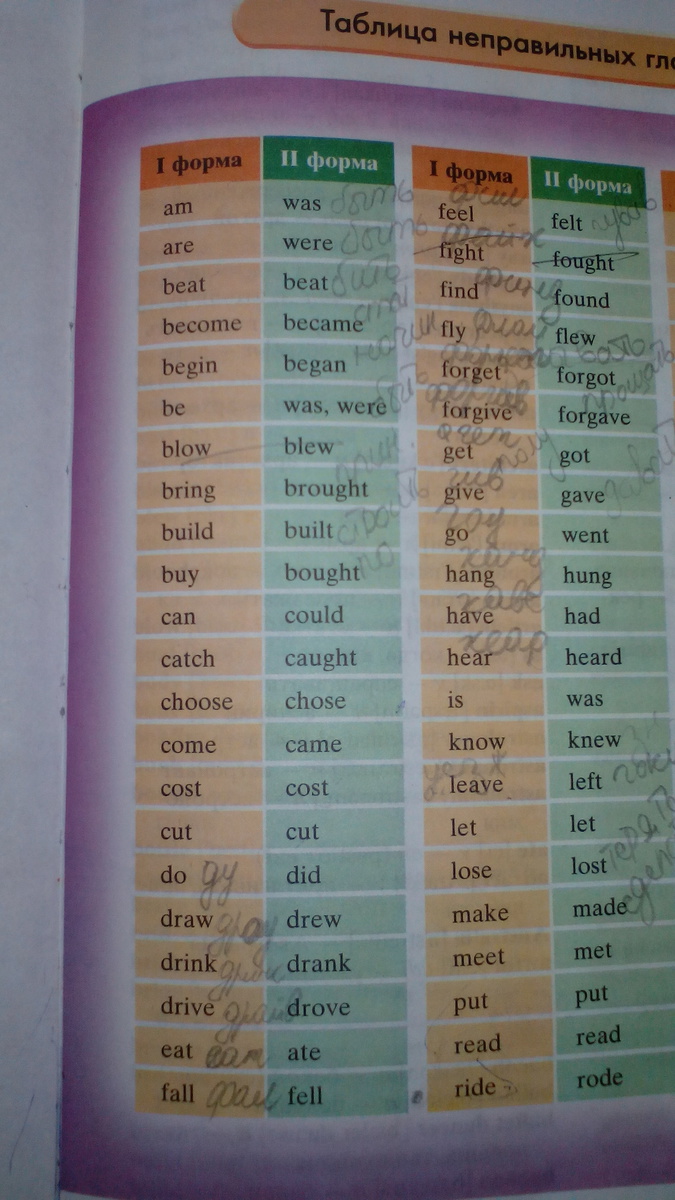 Таблица неправильных гла
I форма II форма
am was быть
are were быть
beat beat бить
become became
begin began
be was, were быть
blow blew
bring brought
build built строить
buy bought по
can could
catch caught
choose chose
come came
cost cost
cut cut
do ду did
draw drew
drink drank
drive драйв drove
eat ate
fall фал fell
I форма II форма
feel felt
fight fought
find found
fly flew
forget forgot
forgive forgave
get got
give гив gave
go гоу went
hang ханг hung
have хаве had
hear хеар heard
is was
know knew
leave left
let let
lose lost
make made
meet met
put put
read read
ride rode